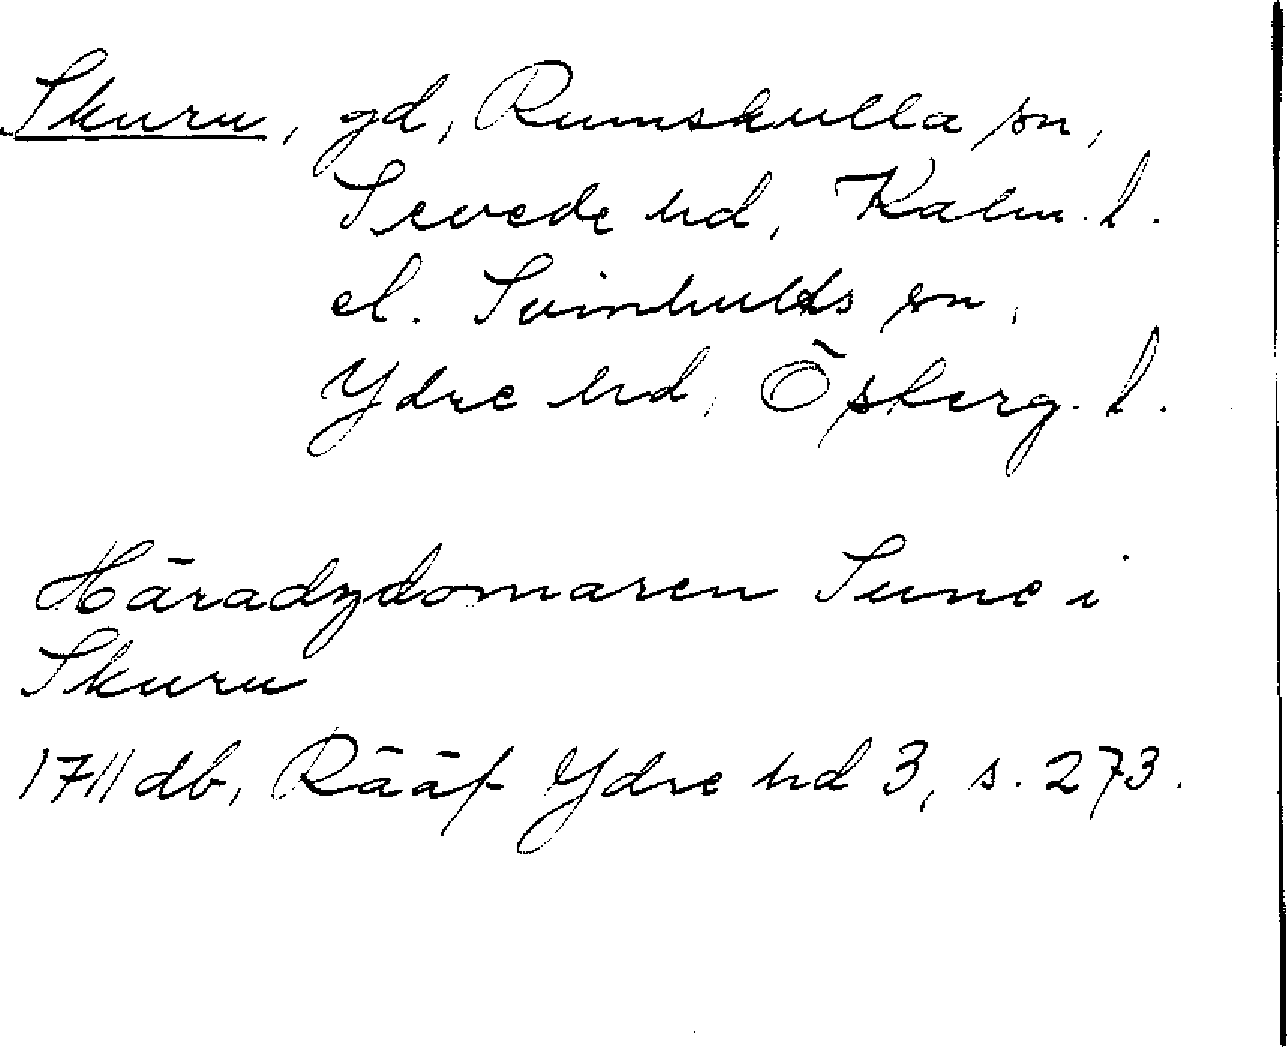 Skuru, gd, Rumskulla sn,
Sevede hd, Kalm. l.
el. Svinhults sn,
Ydre hd, Österg. l.
Häradzdomaren Sune i
Skuru
1711 db, Rääf Ydre hd 3, s. 273.